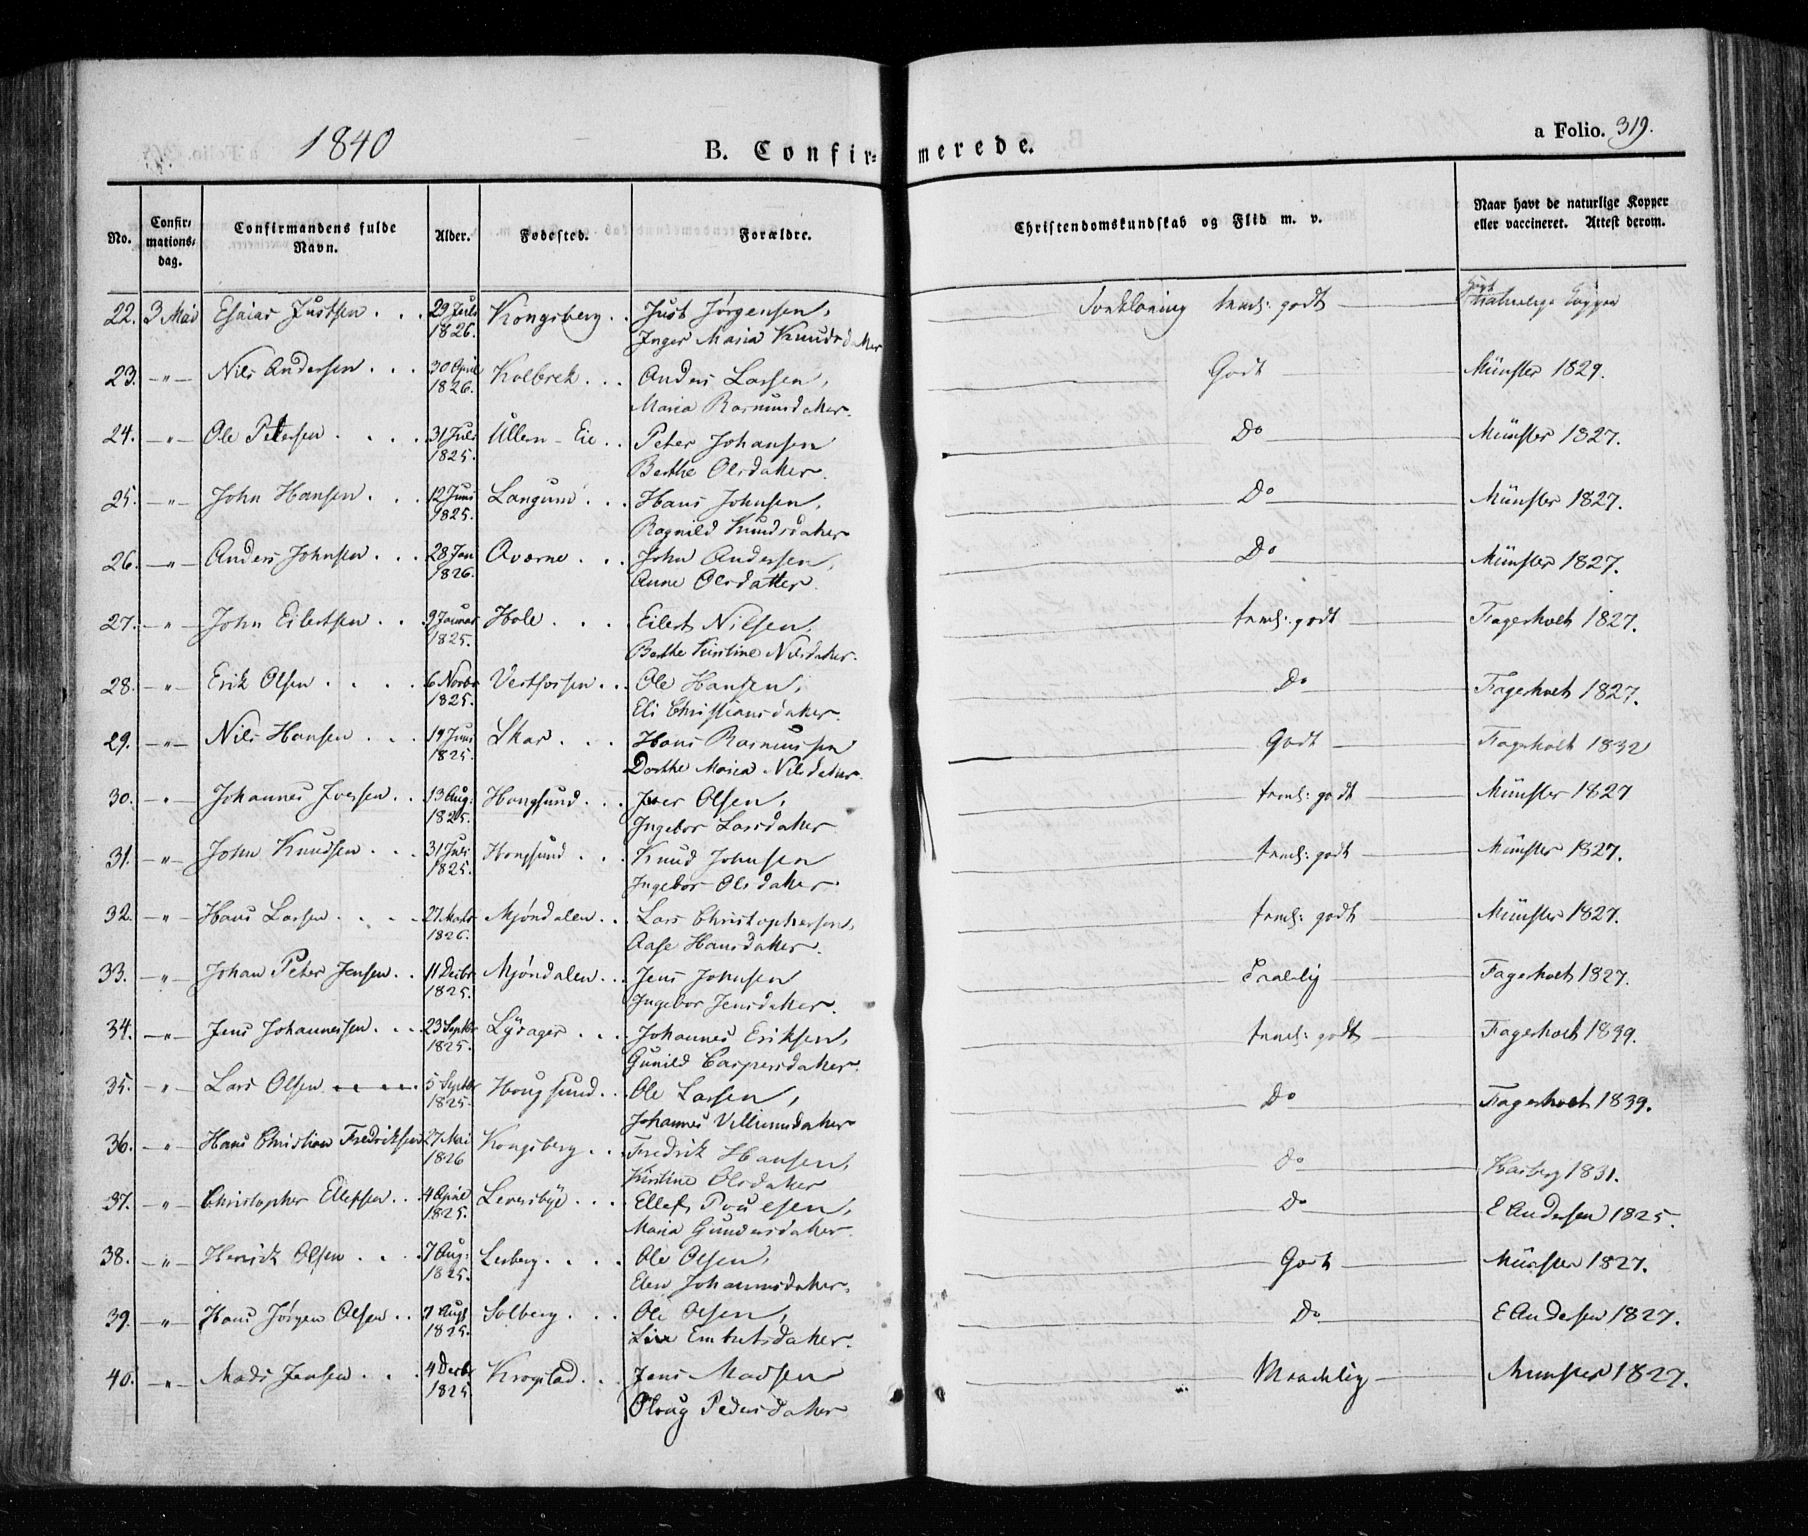 1840
B. Confir-merede.
a Folio. 319.
No.
Confir-
mations-
dag.
Confirmandens fulde
Navn.
Alder.
Fødested.
Forældre.
Christendomskundskab og Flid m. v.
Naar havt de naturlige Kopper
eller vaccineret. Attest derom.
22. 3 Mai Esaias Justsen . . . 29 Juli 1826. Kongsberg . . Just Jørgensen, taml: godt
Inger Maria Knudsdatter
23. -"- Nils Andersen . . . 30 April 1826. Kolbrek . . . Anders Larsen, Godt Münster 1829.
Maria Rasmusdatter.
24. -"- Ole Petersen . . . . 31 Juli 1825. Ullern-Eie . . Peter Johansen Do Münster 1827.
Berthe Olsdatter.
25. -"- John Hansen . . . 12 Juni 1825. Langum . . . Hans Johnsen, Do Münster 1827.
Ragnild Knudsdatter
26. -"- Anders Johnsen . . . 28 Jan 1826. Qværne . . . John Andersen, Do Münster 1827.
Anne Olsdatter.
27. -"- John Eilertsen . . 9 Januar 1825. Hole . . . . Eilert Nilsen, taml: godt Fagerholt 1827.
Berthe Kirstine Nilsdatter.
28. -"- Erik Olsen . . . . 6 Novbr 1825. Vestfossen . . . Ole Hansen, Do Fagerholt 1827.
Eli Christiansdatter.
29. -"- Nils Hansen . . . 19 Juni 1825. Skar . . . Hans Rasmussen Godt Fagerholt 1832
Dorthe Maria Nilsdatter.
30. -"- Johannes Iversen . . 13 Aug: 1825. Hougsund . . . Iver Olsen, taml: godt Münster 1827
Ingebor Larsdatter.
31. -"- John Knudsen . . . 31 Juli 1825. Hougsund . . . Knud Johnsen taml: godt Münster 1827.
Ingebor Olsdatter.
32. -"- Hans Larsen . . . . 27. Marts 1826. Mjøndalen . . Lars Christophersen, taml: godt Münster 1827.
Aase Hansdatter.
33. -"- Johan Peter Jensen . . 11 Decbr 1825. Mjøndalen . . . Jens Johnsen Fagerholt 1827.
Ingebor Jensdatter.
34. -"- Jens Johannessen . . . . 23 Septbr 1825. Lysager . . . Johannes Eriksen, taml: godt Fagerholt 1839.
Gunild Caspersdatter.
35. -"- Lars Olsen 5 Septbr 1825. Hougsund . . Ole Larsen, Do Fagerholt 1839.
Johannes Villumsdatter
36. -"- Hans Christian Fredriksen 27 Mai 1826 Kongsberg . . . Fredrik Hansen, Do 1831.
Kirstine Olsdatter
37. -"- Christopher Ellefsen . . . 4 April 1825. Leversbye . . . Ellef Poulsen, Do E Andersen 1825.
Maria Gundersdatter.
38. -"- Henrik Olsen . . . . 7 Aug: 1825. Lerberg . . . . Ole Olsen, Godt Münster 1827.
Elen Johannesdatter.
39. -"- Hans Jørgen Olsen . . 7 Augt 1825. Solberg . . . Ole Olsen, Do E Andersen 1827.
Live Embretsdatter.
40. -"- Mads Jensen . . . 4 Decbr 1825 Krogstad . . . Jens Madsen Maadelig Munster 1827.
Oloug Pedersdatter